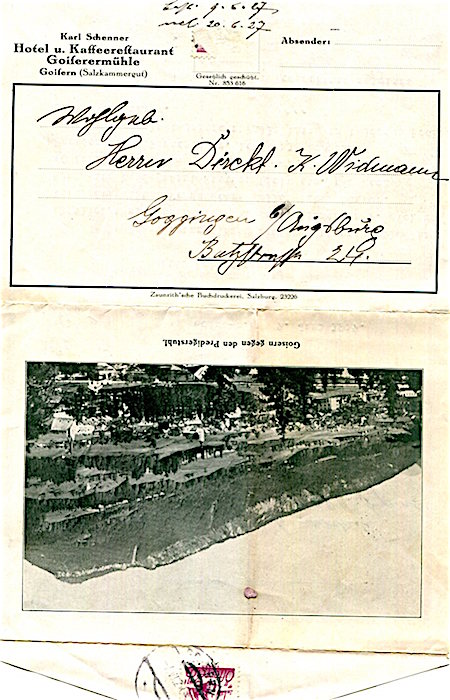 9.6.27
20.6.27
Karl Schenner
Hotel u. Kaffeerestaurant
Goiserermühle
Goisern (Salzkammergut)
Gesetzlich geschützt.
Nr. 853.616
Absender:
Wohlgeb.
Herrn Direkt. K. Widmann
Goggingen b/Augsburg
Zaunrith'sche Buchdruckerei, Salzburg. 23226
Goisern gegen den Predigerstuhl.